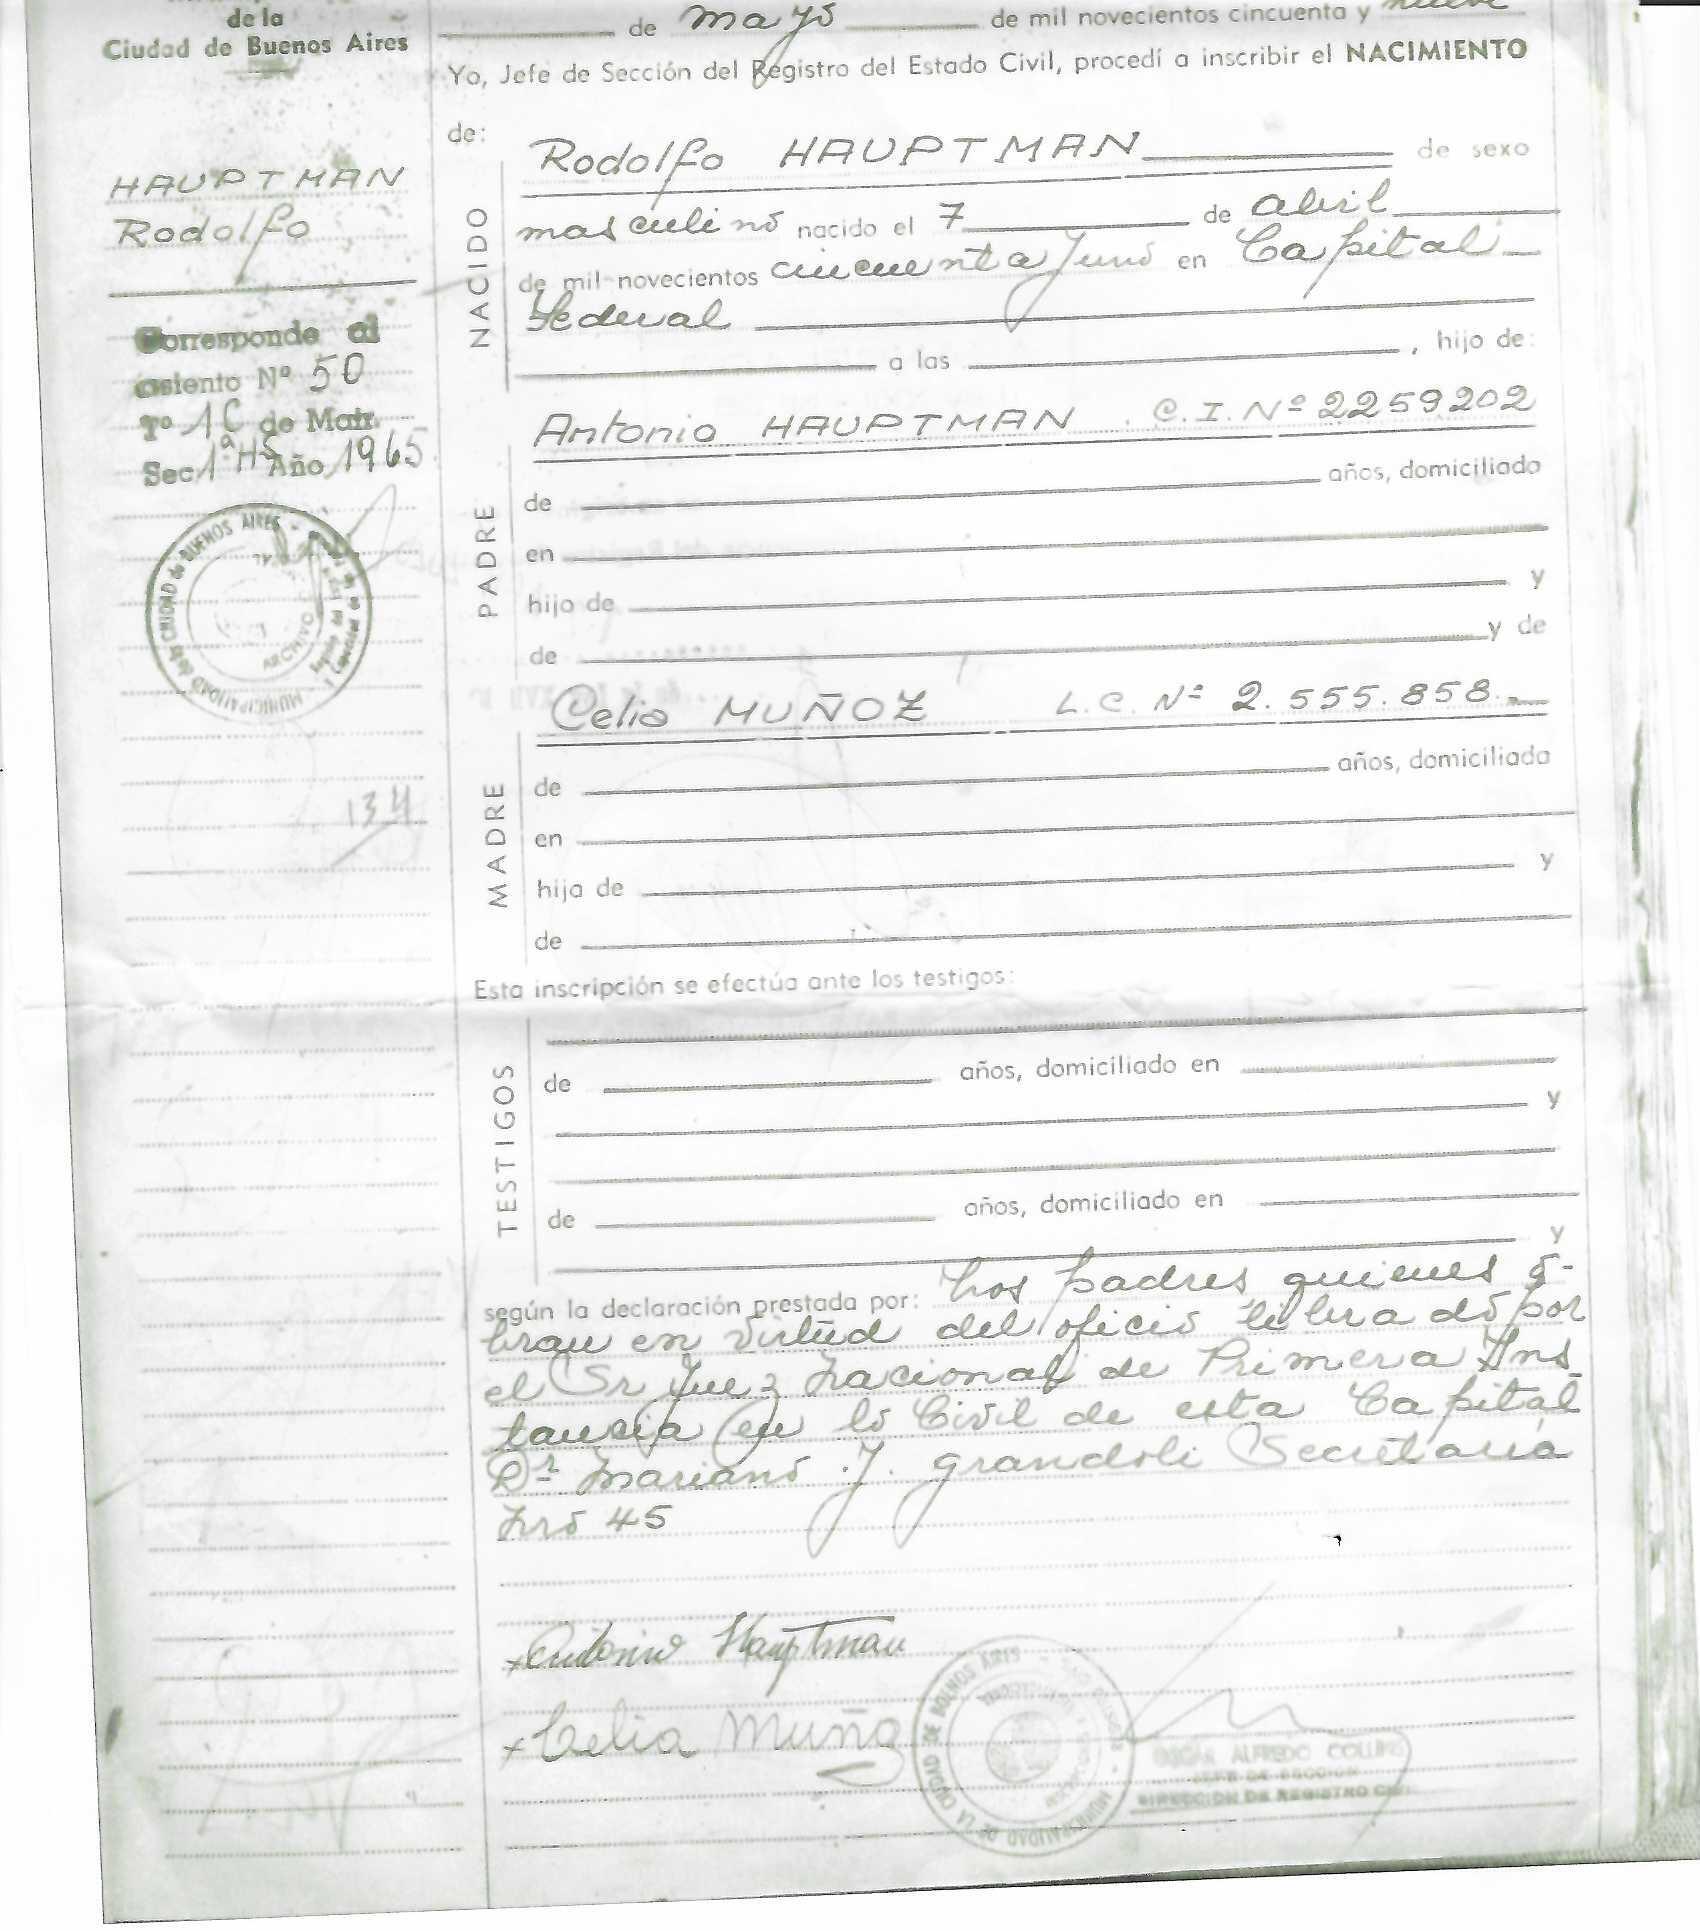 de la
Ciudad de Buenos Aires
HAUPTMAN
Rodolfo
Corresponde al
asiento Nº 50
Tº 1C de Matr.
Sec 1ª HS Año 1965
MUNICIPALIDAD de la CIUDAD de BUENOS AIRES
ARCHIVO
134
de mayo de mil novecientos cincuenta y nueve
Yo, Jefe de Sección del Registro del Estado Civil, procedí a inscribir el NACIMIENTO
de:
NACIDO
Rodolfo HAUPTMAN de sexo
masculino nacido el 7 de abril
de mil novecientos cincuenta y uno en Capital
Federal
a las , hijo de:
PADRE
Antonio HAUPTMAN C.I. Nº 2259202
de años, domiciliado
en
hijo de y
de y de
MADRE
Celia MUÑOZ L.C. Nº 2.555.858.-
de años, domiciliada
en
hija de y
de
Esta inscripción se efectúa ante los testigos:
TESTIGOS
de años, domiciliado en
y
de años, domiciliado en
y
según la declaración prestada por: Los padres quienes o-
bran en virtud del oficio librado por
el Sr Juez Nacional de Primera Ins
tancia en lo Civil de esta Capital
Dr Mariano J. Grandoli Secretaría
Nro 45
x Antonio Hauptman
x Celia Muñoz
MUNICIPALIDAD DE LA CIUDAD DE BUENOS AIRES
OSCAR ALFREDO COLLINS
JEFE DE SECCION
DIRECCION DE REGISTRO CIVIL